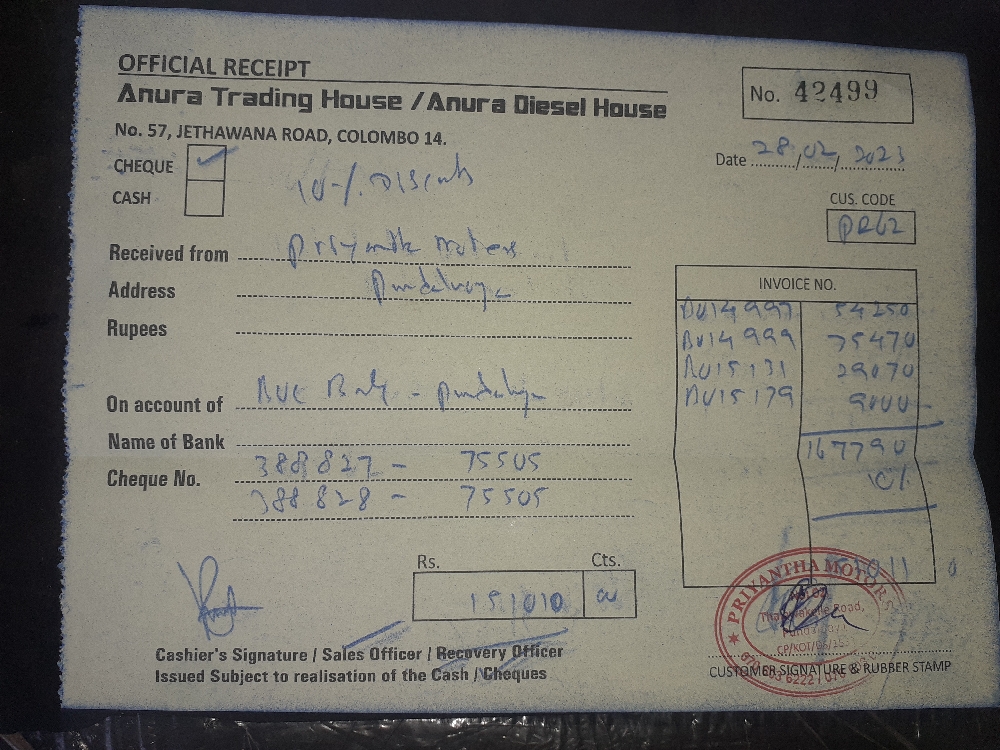 OFFICIAL RECEIPT
Anura Trading House / Anura Diesel House
No. 57, JETHAWANA ROAD, COLOMBO 14.
No. 42499
Date 28/02/2023
CHEQUE ✓
CASH
10% Discount
CUS. CODE
PR62
Received from Priyantha Motors
Address Pundaluoya
Rupees
On account of Bank - Pundaluoya
Name of Bank
Cheque No. 388827 - 75505
388828 - 75505
INVOICE NO.
14997 54250
14999 75470
15131 29070
15179 9000
167790
10%
Rs. Cts.
151010 00
Cashier's Signature / Sales Officer / Recovery Officer
Issued Subject to realisation of the Cash / Cheques
PRIYANTHA MOTORS
Road,
CUSTOMER SIGNATURE & RUBBER STAMP